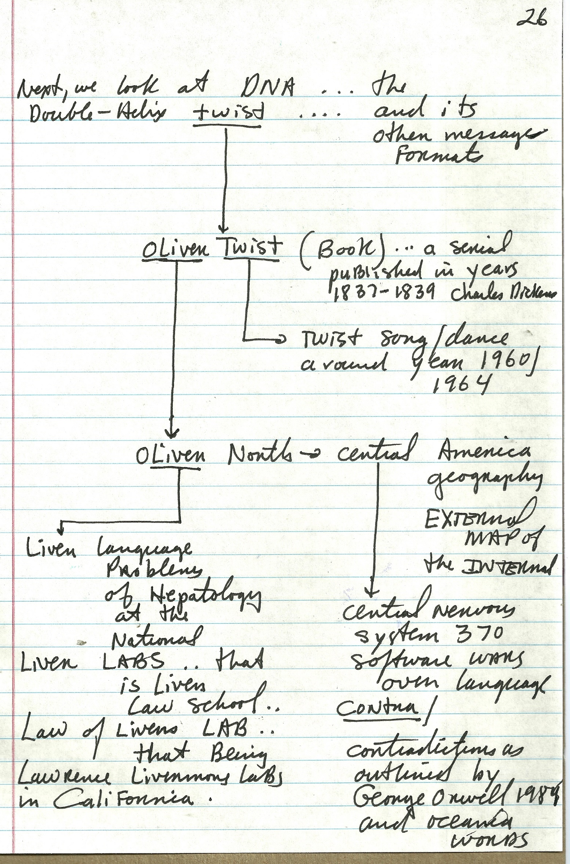 26
Next, we look at DNA ... the
Double-Helix twist .... and its
other message
Formats
Oliver Twist (Book) ... a serial
published in years
1837-1839 Charles Dickens
Twist song/dance
around year 1960/
1964
Oliver North → central America
geography
EXTERNAL
MAP of
the INTERNAL
Liver language
Problems
of Hepatology
at the
National
Liver LABS .. that
is Liver
Law School..
Law of Livers LAB ..
that Being
Lawrence Livermore Labs
in California.
central nervous
system 370
software wars
over language
CONTRA/
contradictions as
outlined by
George Orwell 1984
and oceania
words